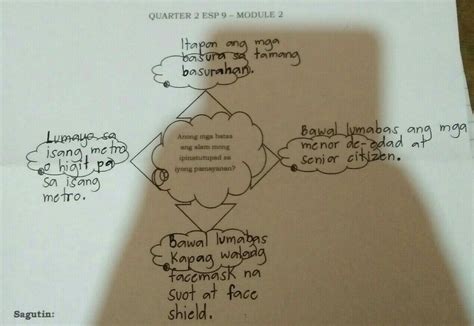 QUARTER 2 ESP 9 – MODULE 2
Itapon ang mga
basura sa tamang
basurahan.
Lumayo sa
isang metro
o higit pa
sa isang
metro.
Anong mga batas
ang alam mong
ipinatutupad sa
iyong pamayanan?
Bawal lumabas ang mga
menor de-edad at
senior citizen.
Bawal lumabas
kapag walang
facemask na
suot at face
shield.
Sagutin: